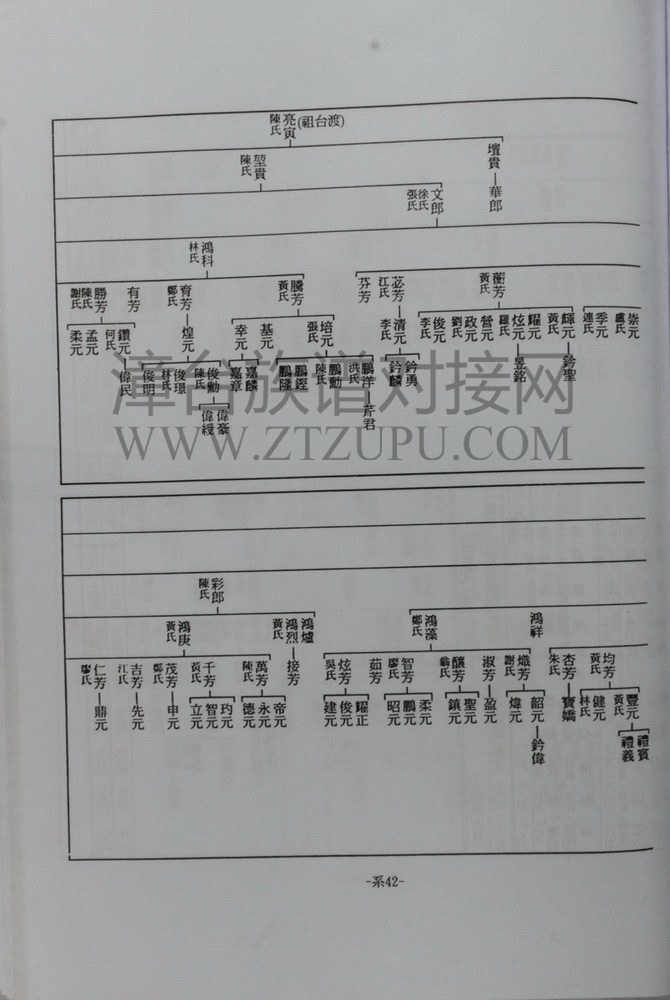 亮寅(祖台渡)
陳氏
壇貴—華郎
堃貴
陳氏
文郎
徐氏
張氏
鴻科
林氏
崇元
盧氏
季元
連氏
蘅芳
黃氏
輝元—鈐聖
黃氏
耀元
炫元—昱銘
羅氏
營元
政元
劉氏
俊元
李氏
苾芳—清元
江氏
李氏
鈐勇
鈐麟
芬芳
騰芳
黃氏
培元
張氏
鵬洋—芹君
洪氏
鵬勳
陳氏
鵬鏗
鵬隆
基元
幸元
嘉麟
嘉章
育芳—煌元
鄭氏
俊勳
陳氏
偉豪
偉綬
俊璟
林氏
俊明
有芳
勝芳
陳氏
謝氏
鑽元
何氏
偉民
孟元
柔元
漳台族谱对接网
WWW.ZTZUPU.COM
彩郎
陳氏
鴻祥
鴻藻
鄭氏
鴻爐
鴻烈—接芳
黃氏
鴻庚
黃氏
均芳
黃氏
豐元
黃氏
禮賓
禮義
健元
林氏
杏芳—寶嬌
朱氏
熾芳
謝氏
韶元—鈐偉
煒元
淑芳—盈元
釀芳
翁氏
聖元
鎮元
智芳
廖氏
柔元
鵬元
昭元
茹芳
炫芳
吳氏
耀正
俊元
建元
萬芳
陳氏
帝元
永元
德元
千芳
黃氏
玓元
智元
立元
茂芳—申元
鄭氏
吉芳—先元
江氏
仁芳—鼎元
廖氏
-系42-